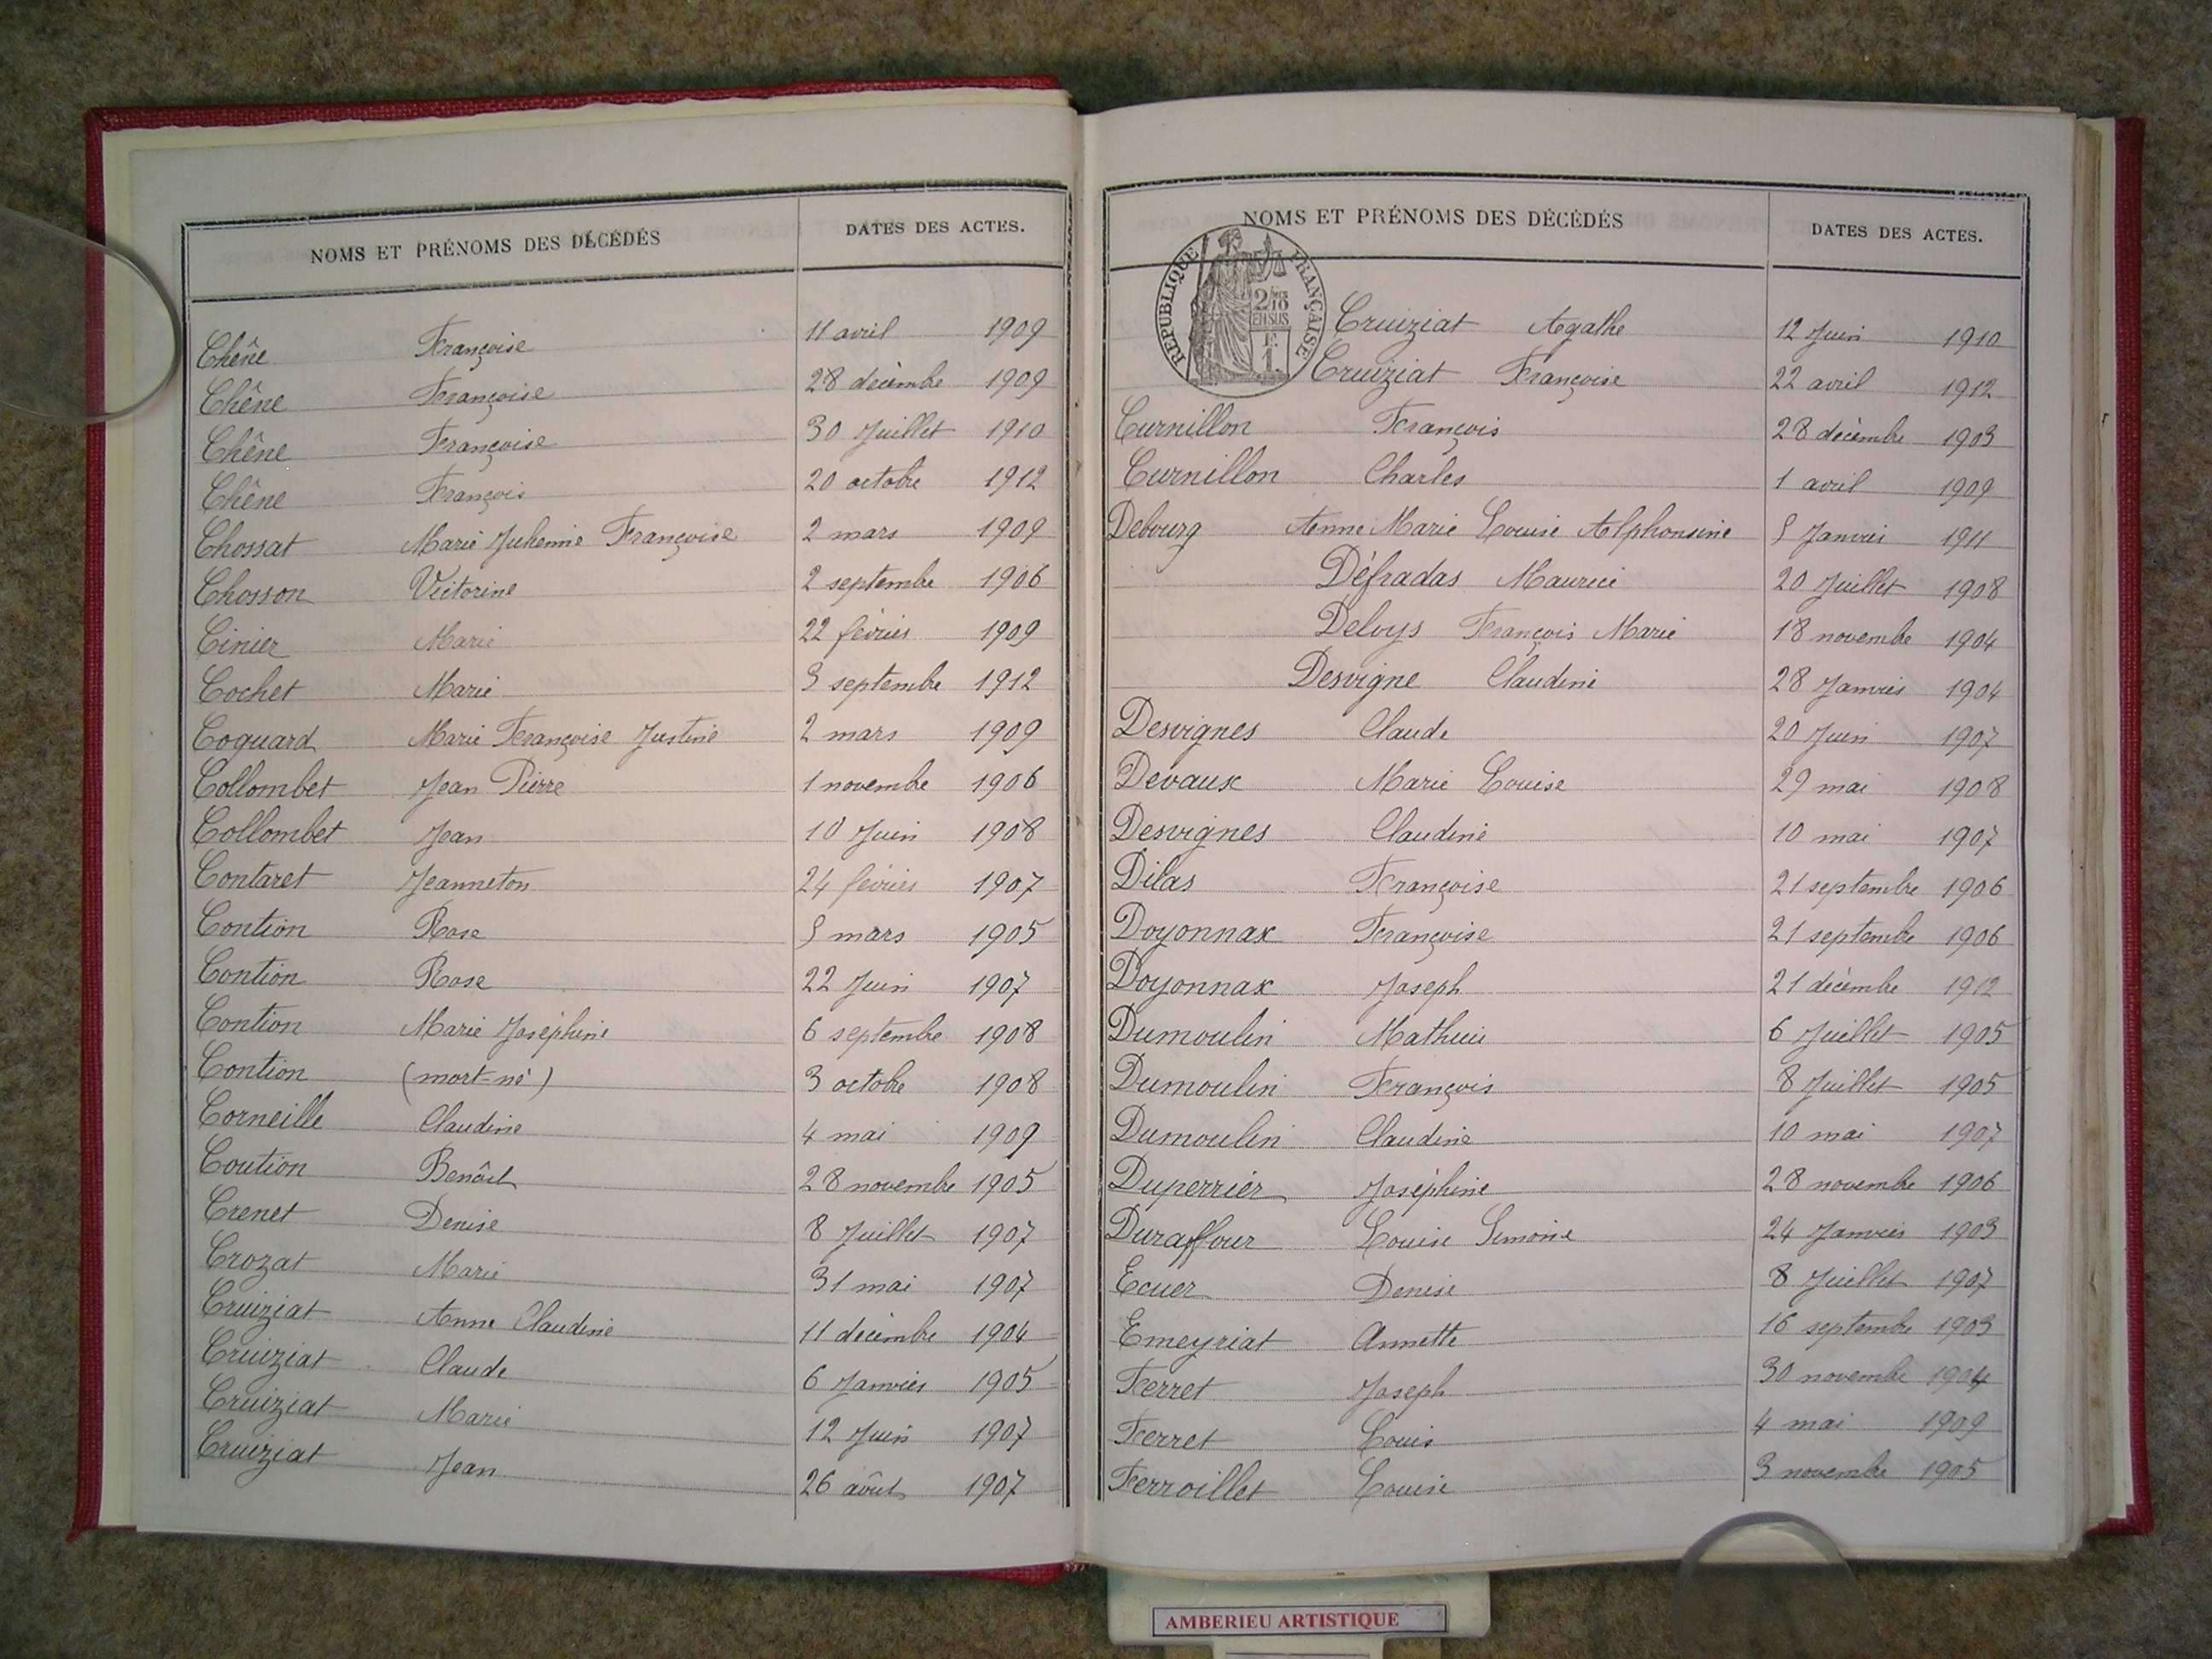 NOMS ET PRÉNOMS DES DÉCÉDÉS DATES DES ACTES.
Chêne Françoise 11 avril 1909
Chêne Françoise 28 décembre 1909
Chêne Françoise 30 Juillet 1910
Chêne François 20 octobre 1912
Chossat Marie Françoise 2 mars 1909
Chosson Victorine 2 septembre 1906
Cinier Marie 22 février 1909
Cochet Marie septembre 1912
Coquard Marie Françoise Justine 2 mars 1909
Collombet Jean Pierre 1 novembre 1906
Collombet Jean 10 Juin 1908
Contaret Jeanneton 24 février 1907
Contion Rose mars 1905
Contion Rose 22 Juin 1907
Contion Marie Joséphine 6 septembre 1908
Contion (mort-né) 3 octobre 1908
Corneille Claudine 4 mai 1909
Coution Benôit 28 novembre 1905
Crenet Denise 8 Juillet 1907
Crozat Marie 31 mai 1907
Cruiziat Anne Claudine 11 décembre 1904
Cruiziat Claude 6 Janvier 1905
Cruiziat Marie 12 Juin 1907
Cruiziat Jean 26 août 1907
NOMS ET PRÉNOMS DES DÉCÉDÉS DATES DES ACTES.
RÉPUBLIQUE FRANÇAISE
Cruiziat Agathe 12 Juin 1910
Cruiziat Françoise 22 avril 1912
Curnillon François 28 décembre 1903
Curnillon Charles 1 avril 1909
Debourg Anne Marie Louise Alphonsine Janvier 1911
Défradas Maurice 20 Juillet 1908
Deloys François Marie 18 novembre 1904
Desvigne Claudine 28 Janvier 1904
Desvignes Claude 20 Juin 1907
Devaux Marie Louise 29 mai 1908
Desvignes Claudine 10 mai 1907
Dilas Françoise 21 septembre 1906
Doyonnax Françoise 21 septembre 1906
Doyonnax Joseph 21 décembre 1912
Dumoulin Mathieu 6 Juillet 1905
Dumoulin François 8 Juillet 1905
Dumoulin Claudine 10 mai 1907
Duperrier Joséphine 28 novembre 1906
Duraffour Louise Simone 24 Janvier 1903
Ecuer Denise 8 Juillet 1907
Emeyriat Annette 16 septembre 1903
Ferret Joseph 30 novembre 1904
Ferret Louis 4 mai 1909
Ferroillet Louise 3 novembre 1905
AMBERIEU ARTISTIQUE